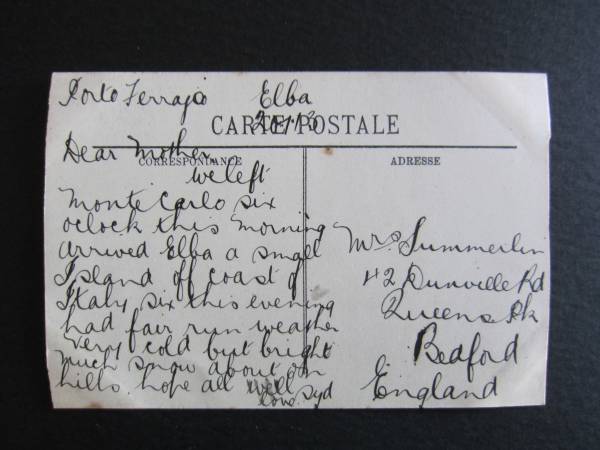 Porto Ferrajo Elba
CARTE POSTALE
CORRESPONDANCE
ADRESSE
Dear Mother,
we left
Monte Carlo six
oclock this morning
arrived Elba a small
Island off coast of
Italy six this evening
had fair run weather
very cold but bright
much snow about on
hills hope all well
love Syd
Mrs Summerlin
42 Dunville Rd
Queens Pk
Bedford
England